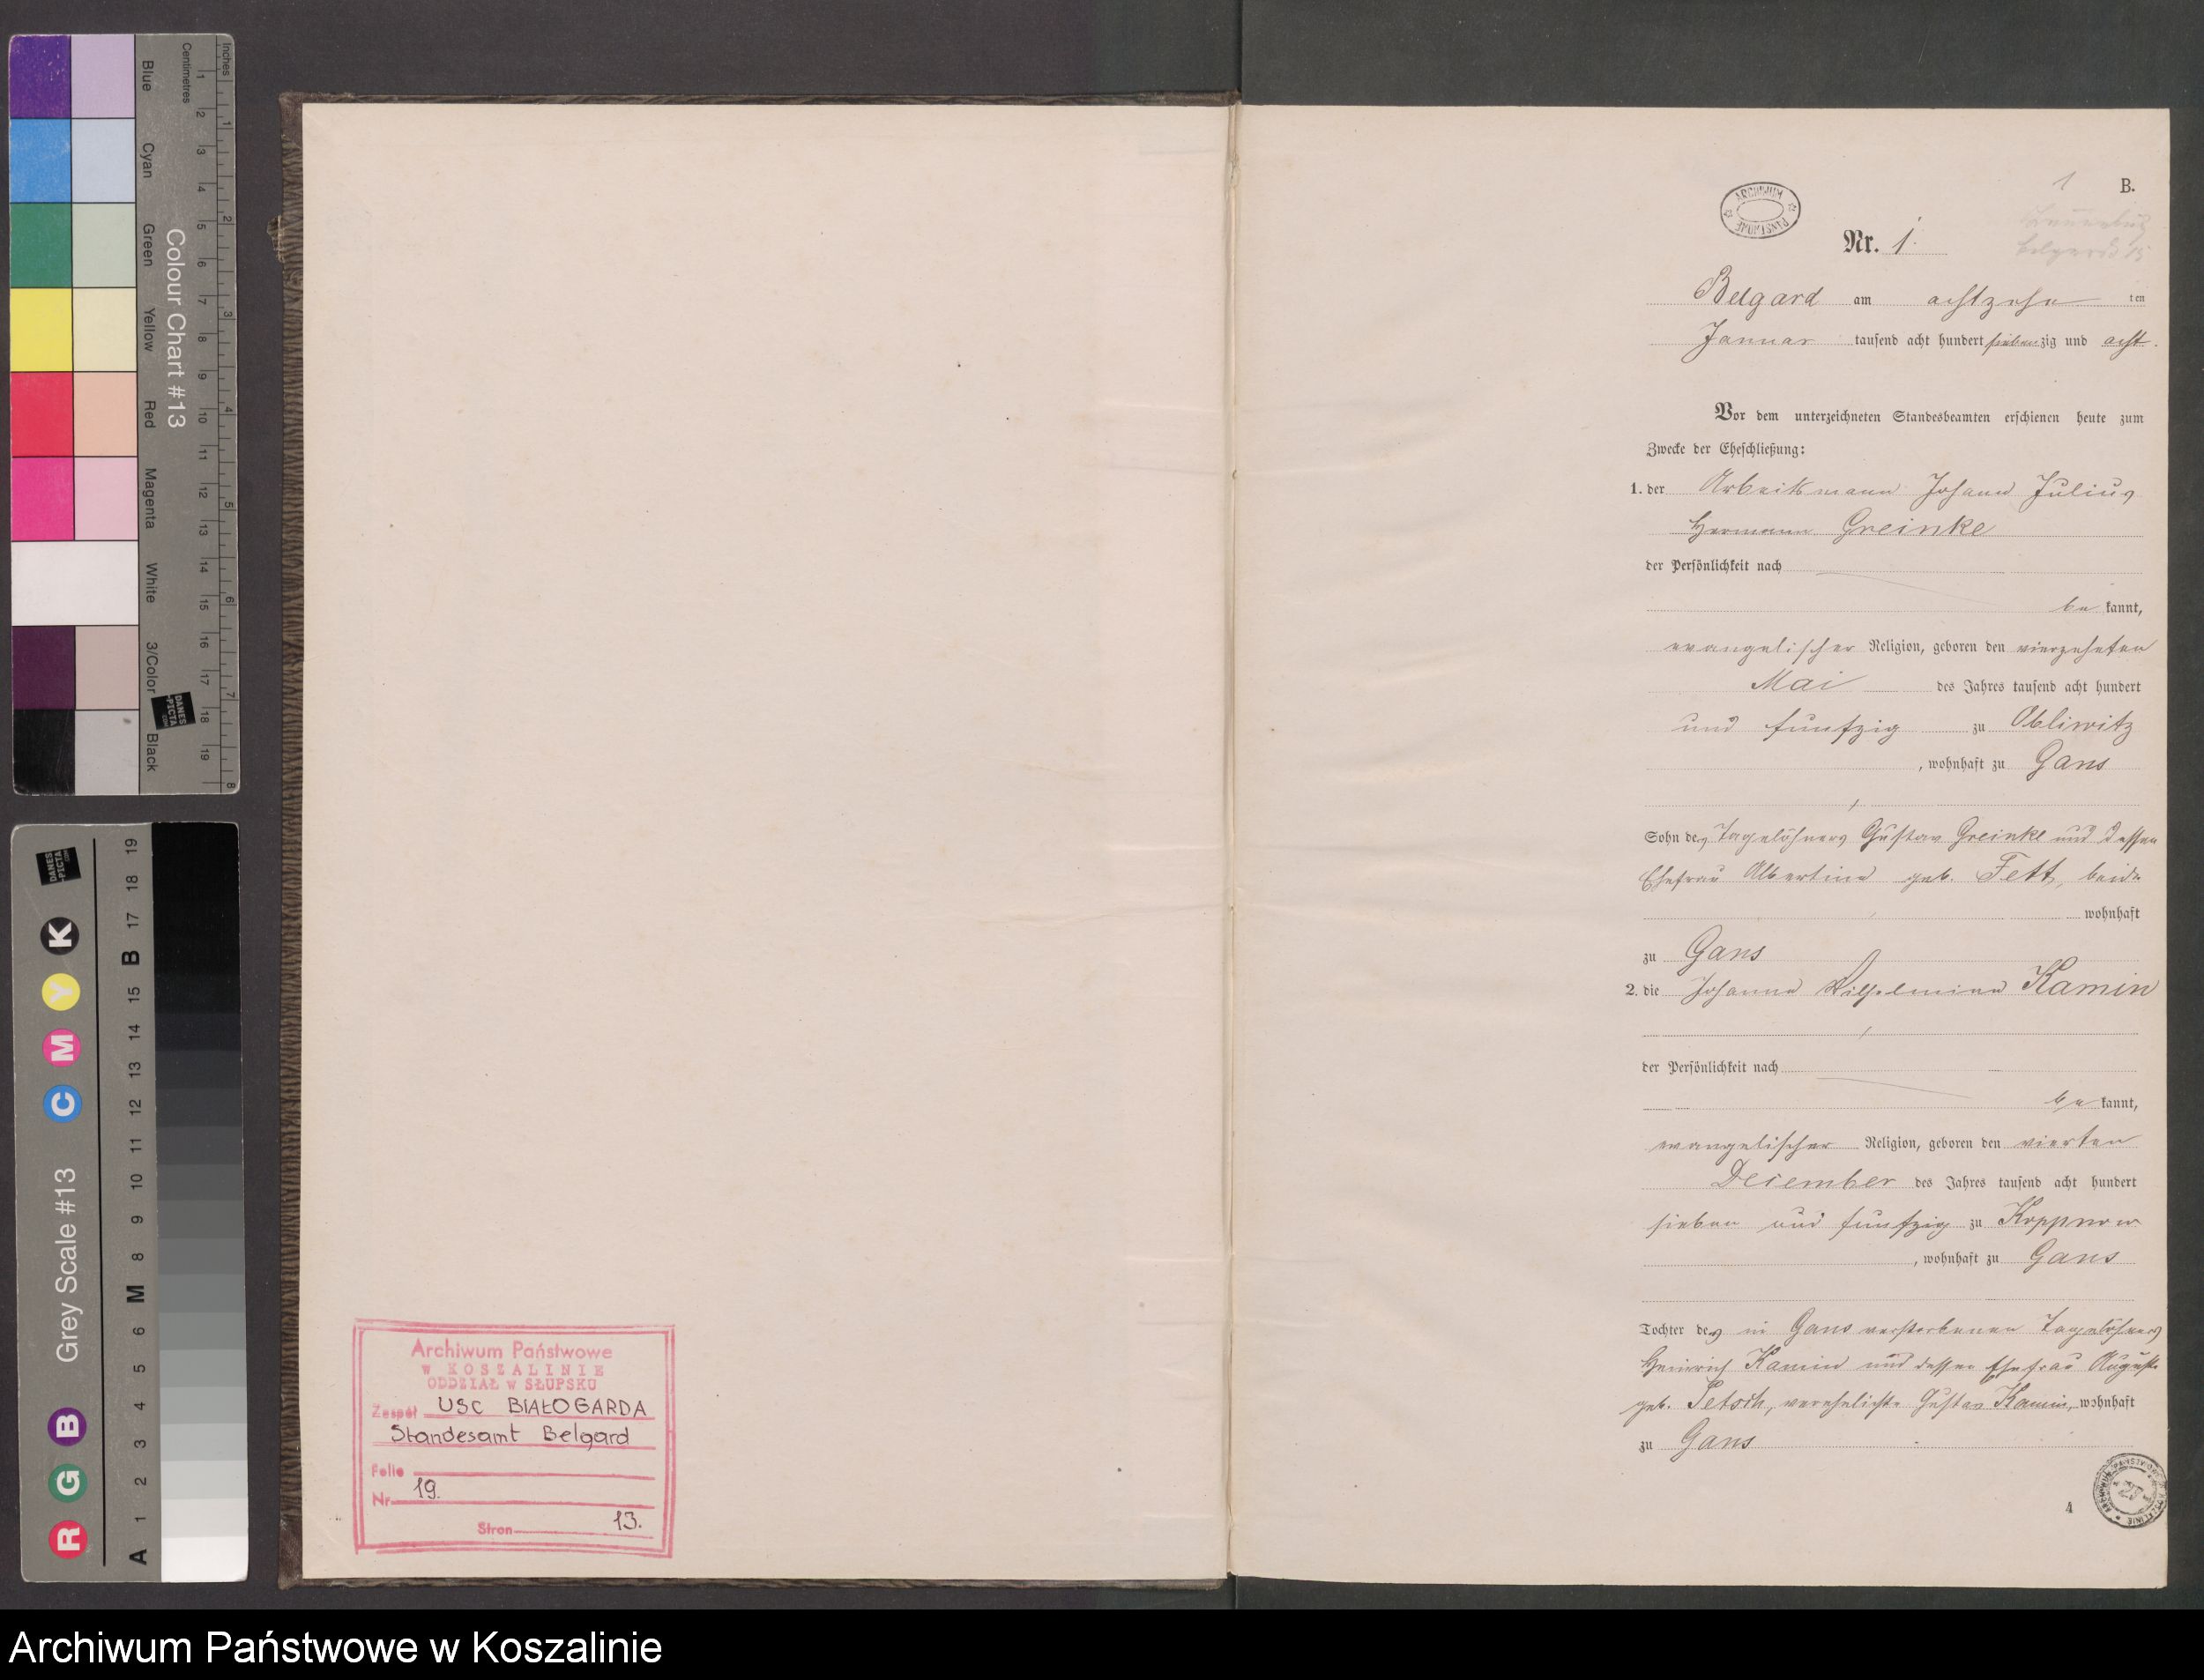 Inches
Centimetres
Colour Chart #13
Blue
Cyan
Green
Yellow
Red
Magenta
White
3/Color
Black
DANES
PICTA
.COM
Grey Scale #13
R G B C M Y K
A 1 2 3 4 5 6 M 8 9 10 11 12 13 14 15 B 17 18 19
Archiwum Państwowe
w KOSZALINIE
ODDZIAŁ w SŁUPSKU
Zespół USC BIAŁOGARDA
Standesamt Belgard
Folio
Nr 19.
Stron 13.
1 B.
ARCHIWUM PAŃSTWOWE
Nr. 1.
Belgard am achtzehn ten
Januar tausend acht hundert siebenzig und acht.
Vor dem unterzeichneten Standesbeamten erschienen heute zum
Zwecke der Eheschließung:
1. der Arbeitsmann Johann Julius
Hermann Greinke
der Persönlichkeit nach
be kannt,
evangelischer Religion, geboren den vierzehnten
Mai des Jahres tausend acht hundert
und funfzig zu Obliwitz
, wohnhaft zu Gans
Sohn des Tagelöhners Gustav Greinke und dessen
Ehefrau Albertine geb. Fett, beide
wohnhaft
zu Gans
2. die Johanne Wilhelmine Kamin
der Persönlichkeit nach
be kannt,
evangelischer Religion, geboren den vierten
Dezember des Jahres tausend acht hundert
sieben und funfzig zu Koppnow
, wohnhaft zu Gans
Tochter des in Gans verstorbenen Tagelöhners
Heinrich Kamin und dessen Ehefrau Auguste
geb. Petsch, verehelichte Gustav Kamin, wohnhaft
zu Gans
4
Archiwum Państwowe w Koszalinie